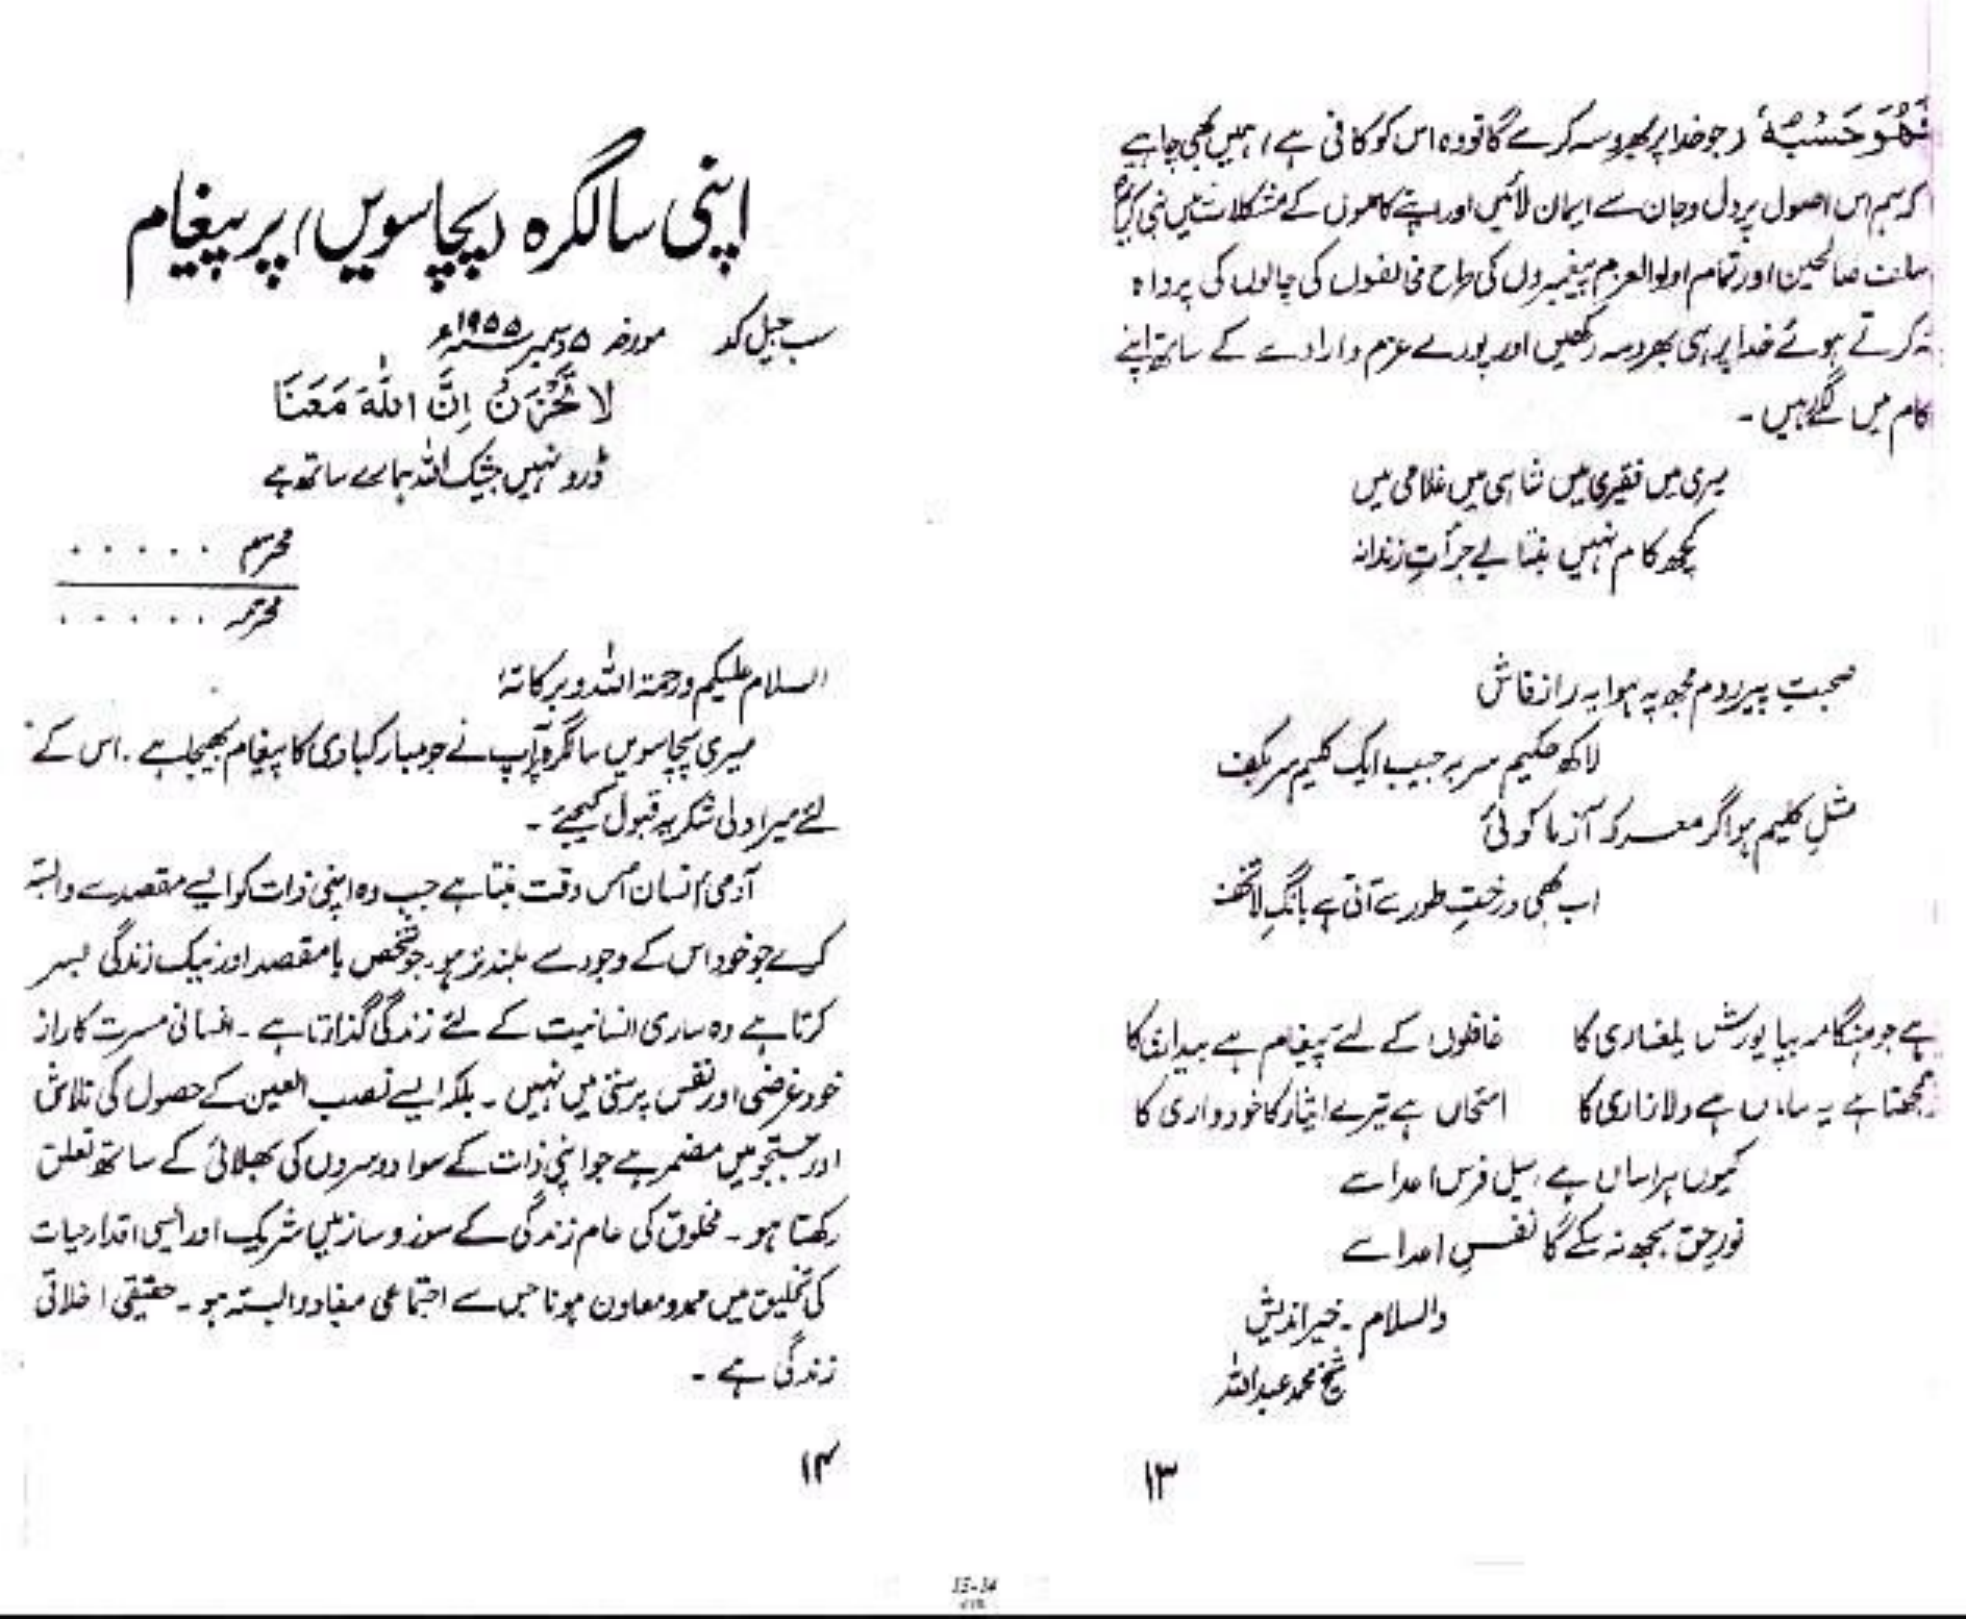 فَهُوَ حَسْبُهٗ (جو خدا پر بھروسہ کرے گا تو وہ اس کو کافی ہے) ہمیں بھی چاہیے
کہ ہم اس اصول پر دل و جان سے ایمان لائیں اور اپنے کاموں کے مشکلات میں نبی کریمؐ
سلف صالحین اور تمام اولوالعزم پیغمبروں کی طرح مخالفوں کی چالوں کی پرواہ
نہ کرتے ہوئے خدا پر ہی بھروسہ رکھیں اور پورے عزم و ارادے کے ساتھ اپنے
کام میں لگے رہیں ۔
میری میں فقیری میں شاہی میں غلامی میں
کچھ کام نہیں بنتا بے جرأتِ رندانہ
صحبتِ پیر روم مجھ پہ ہوا یہ راز فاش
لاکھ حکیم سر بہ جیب ایک کلیم سر بکف
مثلِ کلیم ہو اگر معرکہ آزما کوئی
اب بھی درختِ طور سے آتی ہے بانگِ لاتخف
ہے جو ہنگامہ بپا یورش بلغاری کا غافلوں کے لئے پیغام ہے بیداری کا
سمجھتا ہے یہ ساماں ہے دل آزاری کا امتحاں ہے تیرے ایثار کا خودداری کا
کیوں ہراساں ہے سہیل فرس اعدا سے
نورِ حق بجھ نہ سکے گا نفسِ اعدا سے
والسلام ۔ خیر اندیش
شیخ محمد عبداللہ
۱۳
اپنی سالگرہ (پچاسویں) پر پیغام
سب جیل کد مورخہ ۵ دسمبر ۱۹۵۵ء
لَا تَحْزَنْ اِنَّ اللّٰهَ مَعَنَا
ڈرو نہیں بیشک اللہ ہمارے ساتھ ہے
محترم . . . . .
محترمہ . . . . .
السلام علیکم ورحمۃ اللہ وبرکاتہٗ
میری پچاسویں سالگرہ پر آپ نے جو مبارکبادی کا پیغام بھیجا ہے . اس کے
لئے میرا دلی شکریہ قبول کیجئے ۔
آدمی انسان اُس وقت بنتا ہے جب وہ اپنی ذات کو ایسے مقصد سے وابستہ
کرے جو خود اس کے وجود سے بلند تر ہو۔ جو شخص بامقصد اور نیک زندگی بسر
کرتا ہے وہ ساری انسانیت کے لئے زندگی گذارتا ہے ۔ انسانی مسرت کا راز
خود غرضی اور نفس پرستی میں نہیں ۔ بلکہ ایسے نصب العین کے حصول کی تلاش
اور جستجو میں مضمر ہے جو اپنی ذات کے سوا دوسروں کی بھلائی کے ساتھ تعلق
رکھتا ہو ۔ مخلوق کی عام زندگی کے سوز و ساز میں شریک اور ایسی اقدار حیات
کی تخلیق میں ممد و معاون ہونا جس سے اجتماعی مفاد وابستہ ہو ۔ حقیقی اخلاقی
زندگی ہے ۔
۱۴
13-14